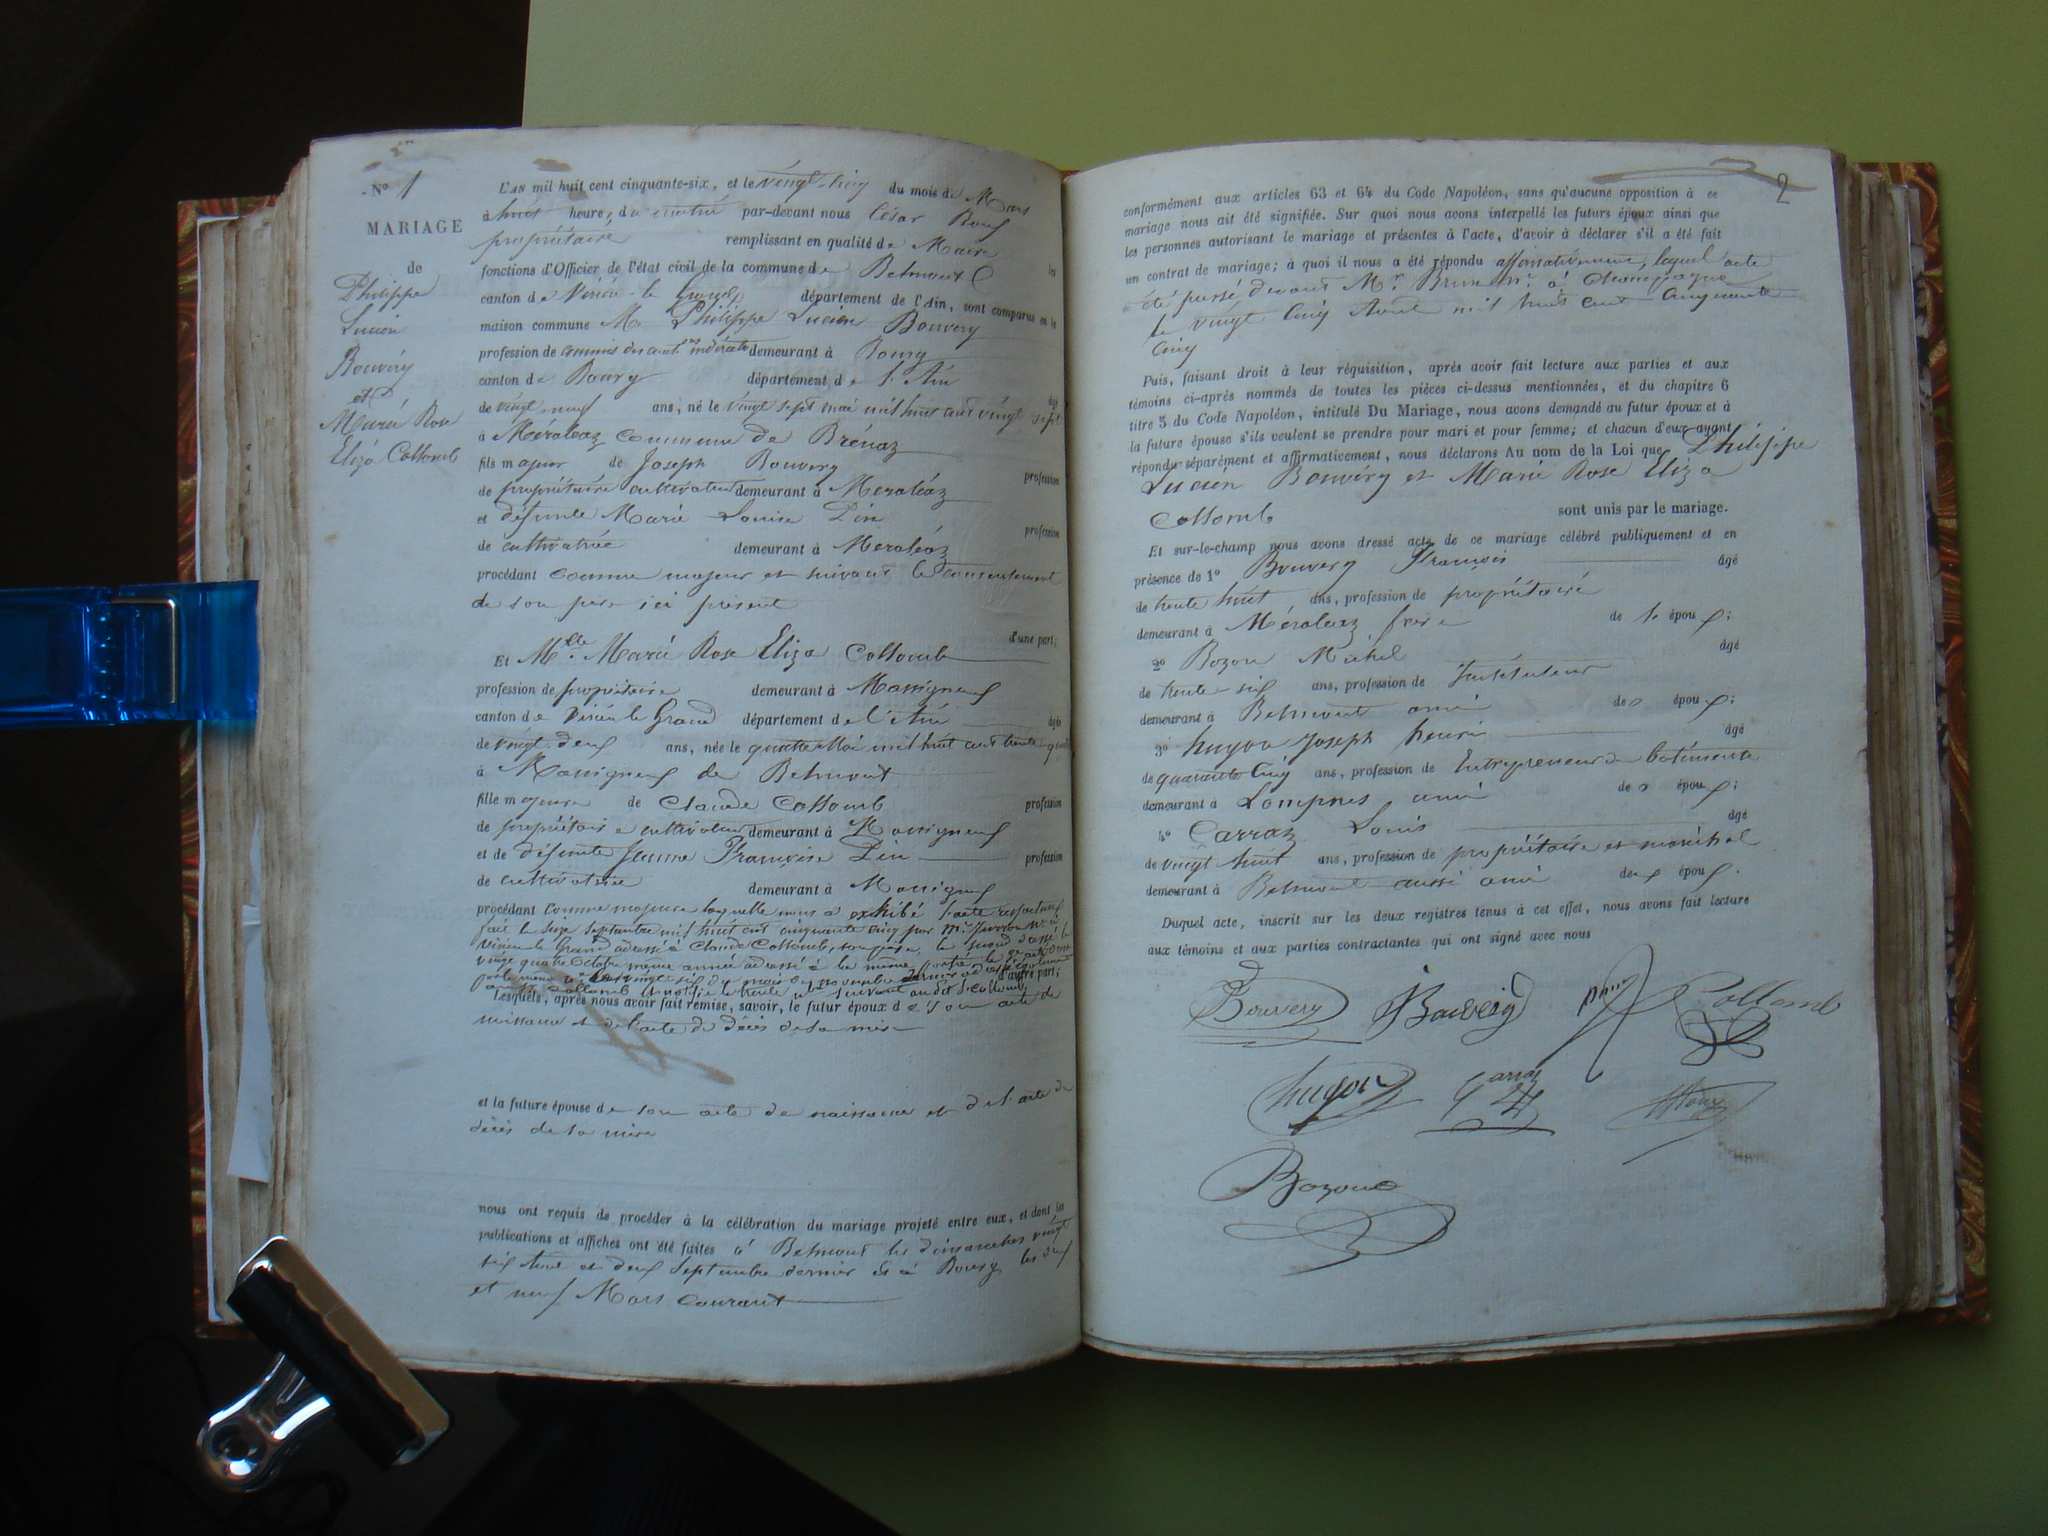 N° 1
MARIAGE
de
Philippe
Lucien
Bouvery
et
Marie Rose
Eliza Collomb
L'an mil huit cent cinquante-six, et le vingt-cinq du mois de Mars
à huit heures du matin par-devant nous César
propriétaire remplissant en qualité de Maire les
fonctions d'Officier de l'état civil de la commune de Belmont
canton de Virieu-le-Grand département de l'Ain, sont comparus en la
maison commune M. Philippe Lucien Bouvery
profession de commis des indirectes demeurant à Bourg
canton de Bourg département de l'Ain âgé
de vingt neuf ans, né le vingt sept mai mil huit cent vingt sept
à Méraléaz commune de Brénaz
fils majeur de Joseph Bouvery profession
de propriétaire cultivateur demeurant à Méraléaz
et défunte Marie Louise Pin profession
de cultivatrice demeurant à Méraléaz
procédant comme majeur et suivant le consentement
de son père ici présent
d'une part;
Et Mlle Marie Rose Eliza Collomb
profession de propriétaire demeurant à Massigneux
canton de Virieu le Grand département de l'Ain âgée
de vingt deux ans, née le quatre Mai mil huit cent trente quatre
à Massigneux de Belmont
fille majeure de Claude Collomb profession
de propriétaire cultivateur demeurant à Massigneux
et de défunte Jeanne Françoise Pin profession
de cultivatrice demeurant à Massigneux
procédant comme majeure laquelle nous a exhibé l'acte respectueux
fait le seize septembre mil huit cent cinquante cinq par Mr
Virieu le Grand adressé à Claude Collomb, son père, le second
vingt quatre Octobre même année adressé à la même
d'autre part;
Lesquels, après nous avoir fait remise, savoir, le futur époux de son acte de
naissance et de l'acte de décès de sa mère
et la future épouse de son acte de naissance et de l'acte de
décès de sa mère
nous ont requis de procéder à la célébration du mariage projeté entre eux, et dont les
publications et affiches ont été faites à Belmont les dimanches vingt
six Août et deux Septembre dernier et à Bourg les deux
et neuf Mars courant
2
conformément aux articles 63 et 64 du Code Napoléon, sans qu'aucune opposition à ce
mariage nous ait été signifiée. Sur quoi nous avons interpellé les futurs époux ainsi que
les personnes autorisant le mariage et présentes à l'acte, d'avoir à déclarer s'il a été fait
un contrat de mariage; à quoi il nous a été répondu affirmativement, lequel acte
a été passé devant Mr. Brun nre à Champagne
le vingt cinq Avril mil huit cent cinquante
cinq
Puis, faisant droit à leur réquisition, après avoir fait lecture aux parties et aux
témoins ci-après nommés de toutes les pièces ci-dessus mentionnées, et du chapitre 6
titre 5 du Code Napoléon, intitulé Du Mariage, nous avons demandé au futur époux et à
la future épouse s'ils veulent se prendre pour mari et pour femme; et chacun d'eux ayant
répondu séparément et affirmativement, nous déclarons Au nom de la Loi que Philippe
Lucien Bouvéry et Marie Rose Eliza
Collomb sont unis par le mariage.
Et sur-le-champ nous avons dressé acte de ce mariage célébré publiquement et en
présence de 1° Bouvery François âgé
de trente huit ans, profession de propriétaire
demeurant à Méraléaz frère de l'époux;
2° Bozon Michel âgé
de trente-six ans, profession de Instituteur
demeurant à Belmont ami des époux;
3° hugon Joseph henri âgé
de quarante cinq ans, profession de Entrepreneur de batiments
demeurant à Lompnes ami des époux;
4° Carraz Louis âgé
de vingt huit ans, profession de propriétaire et maréchal
demeurant à Belmont aussi ami des époux.
Duquel acte, inscrit sur les deux registres tenus à cet effet, nous avons fait lecture
aux témoins et aux parties contractantes qui ont signé avec nous
Bouvery Bouvery Collomb
hugon Carraz
Bozon